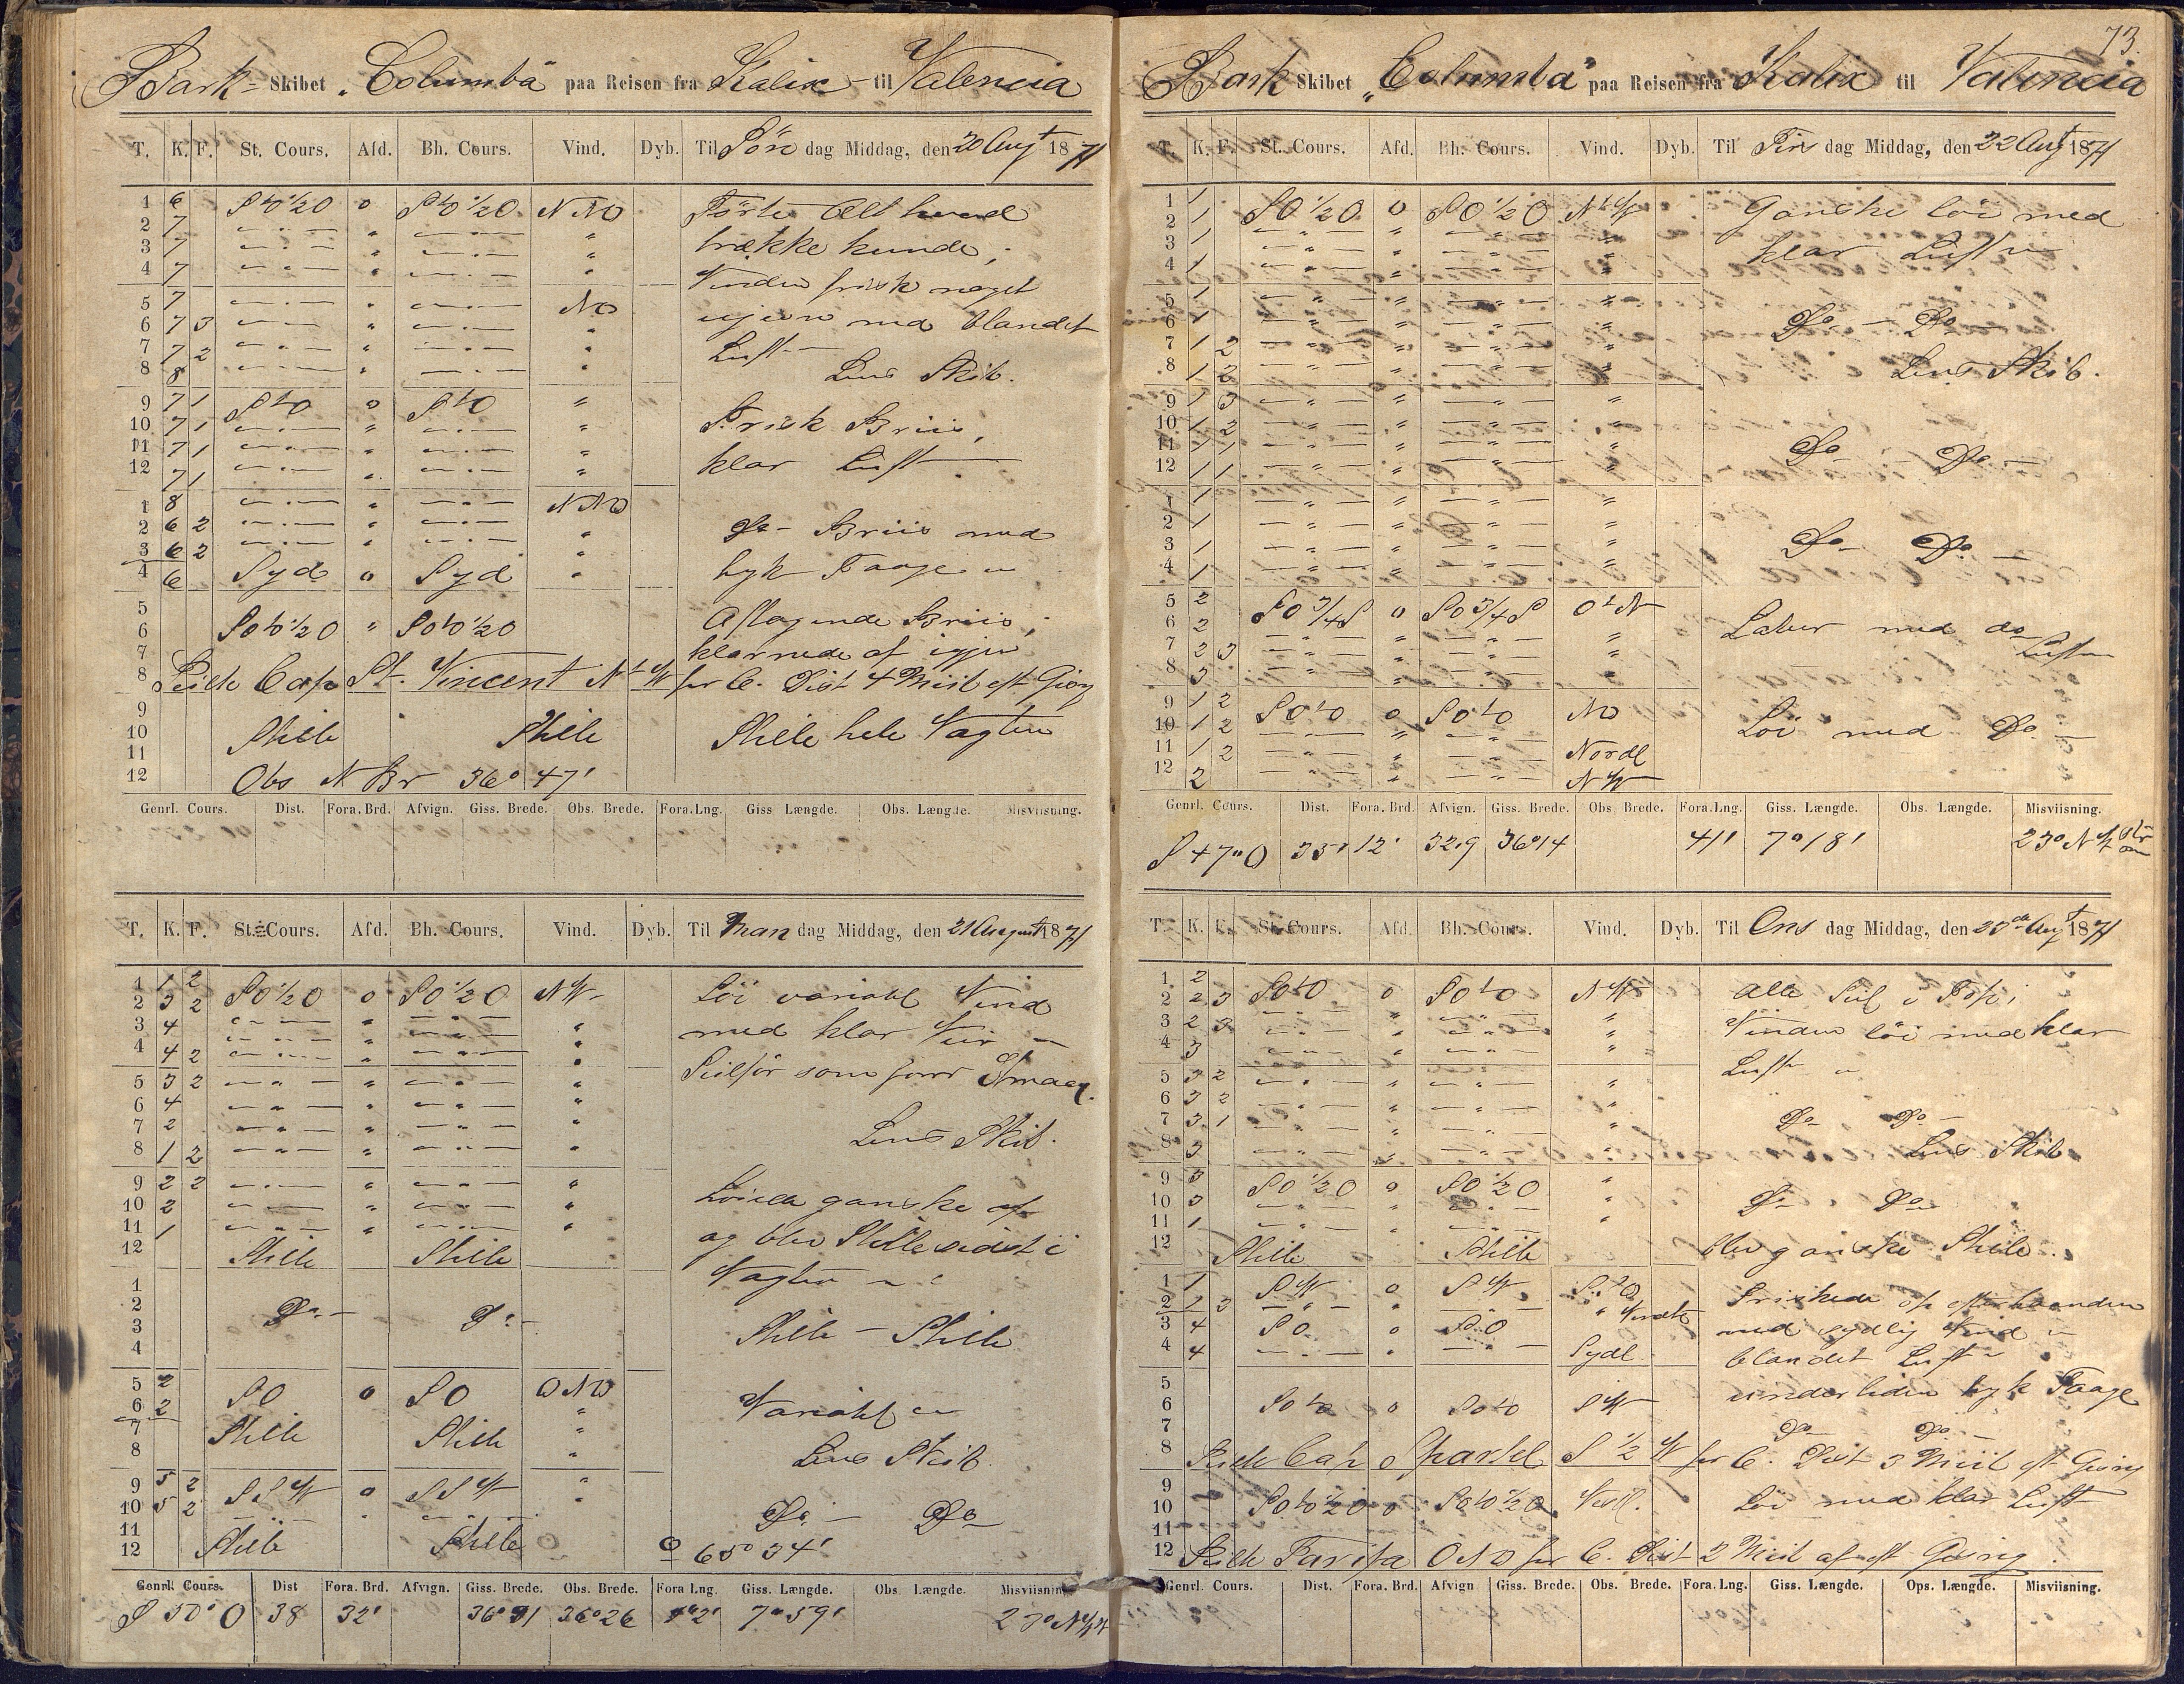 Bark Skibet „Columba" paa Reisen fra Kalix til Valencia
T. K. F. St. Cours. Afd. Bh. Cours. Vind. Dyb. Til Søn dag Middag, den 20 Augt 1871
1 6 StO 1/2 O 0 StO 1/2 O NNO Førte Alt hvad
2 7 — " — " — " — "
3 7 — " — " — " — " trække kunde,
4 7 — " — " — " — " Vinden frisk noget
5 7 — " — " — " — NO ujevn med blandet
6 7 3 — " — " — " — "
7 7 2 — " — " — " — " Luft —
8 8 — " — " — " — " Lens Skib.
9 7 1 StO 0 StO "
10 7 1 — " — " — " — " Frisk Briis,
11 7 1 — " — " — " — "
12 7 1 — " — " — " — " klar Luft —
1 8 — " — " — " — NNO
2 6 2 — " — " — " — " Do — Briis med
3 6 2 — " — " — " — "
4 6 Syd 0 Syd " tyk Taage "
5 Aftagende Briis,
6 SOtO 1/2 O " SOtO 1/2 O
7 klarnede af igjen
8 Peilte Cap St. Vincent NtW pr C. Dist 4 Miil eft Gisng
9
10 Stille Stille Stille hele Vagten
11
12 Obs N Br 36° 47'
Genrl. Cours. Dist. Fora. Brd. Afvign. Giss. Brede. Obs. Brede. Fora. Lng. Giss Længde. Obs. Længde. Misviisning.
T. K. F. St. Cours. Afd. Bh. Cours. Vind. Dyb. Til Man dag Middag, den 21 August 1871
1 1 2
2 3 2 SO 1/2 O 0 SO 1/2 O NW Løi variabl Vind
3 4 — " — " — " — " med klar Veir "
4 4 2 — " — " — " — "
5 3 2 — " — " — " — " Seilfør som forr
6 4 — " — " — " — "
7 2 — " — " — " — " Lens Skib.
8 1 2 — " — " — " — "
9 2 2 — " — " — " — " Løiede ganske af
10 2 — " — " — " — "
11 1 — " — " — " — " og blev Stille sidst i
12 Stille Stille Vagten "
1
2 Do — Do —
3 Stille — Stille
4
5 2 SO 0 SO ONO
6 2 " Variabl "
7 Stille Stille "
8 " Lens Skib.
9 5 2 SSW 0 SSW "
10 5 2 — " — " — " — " Do — Do
11
12 Stille Stille 65° 34'
Genrl. Cours. Dist Fora. Brd. Afvign. Giss. Brede. Obs. Brede. Fora Lng. Giss. Længde. Obs Længde. Misviisning
S 50° O 38 32' 36° 31 36° 26 7° 59' 23° NW
73.
Bark Skibet „Columba" paa Reisen fra Kalix til Valencia
T. K. F. St. Cours. Afd. Bh. Cours. Vind. Dyb. Til Tirs dag Middag, den 22 Augt 1871
1 1
2 1 SO 1/2 O 0 SO 1/2 O NtW Ganske løi med
3 1 — " — " — " — "
4 1 — " — " — " — " klar Luft "
5 1 — " — " — " — "
6 1 — " — " — " — " Do — Do —
7 1 2 — " — " — " — "
8 1 2 — " — " — " — " Lens Skib.
9 1 3 — " — " — " — "
10 1 2 — " — " — " — "
11 1 1 — " — " — " — " Do — Do —
12 1 1 — " — " — " — "
1 1 — " — " — " — "
2 1 — " — " — " — "
3 1 — " — " — " — " Do — Do —
4 1 — " — " — " — "
5 2 SO 3/4 S 0 SO 3/4 S OtN
6 2 — " — " — " — " Laber med do
7 2 3 — " — " — " — " Luft
8 3 — " — " — " — "
9 1 2 SOtO 0 SOtO NO
10 1 2 — " — " — " — Løi med Do —
11 1 2 — " — " — " — Nordl
12 2 — " — " — " — NW
Genrl. Cours. Dist. Fora. Brd. Afvign. Giss. Brede. Obs Brede. Fora. Lng. Giss. Længde. Obs. Længde. Misviisning.
S 47° O 35' 12' 32.9 36° 14 41' 7° 18' 23° NW
T. K. F. St. Cours. Afd. Bh. Cours. Vind. Dyb. Til Ons dag Middag, den 23de Augt 1871
1 2
2 2 3 SOtO 0 SOtO NW Alle Seil i Top;
3 2 3 — " — " — " — " Vinden løi med klar
4 3 — " — " — " — "
5 3 2 — " — " — " — Luft "
6 3 2 — " — " — " — "
7 3 1 — " — " — " — " Do — Do —
8 3 — " — " — " — Lens Skib
9 3 SO 1/2 O 0 SO 1/2 O "
10 3 — " — " — " — " Do — Do
11 1 — " — " — " — "
12 Stille Stille blev ganske Stille.
1 1 SW 0 SW Friskede op efterhaanden
2 3 — " — " — " —
3 4 SO 0 SO med sydlig Vind "
4 4 — " — " — " — Sydl blandet Luft "
5 underliden tyk Taage
6 SOtO 0 SOtO SW
7 Do — Do —
8 Peilte Cap Spartel S 1/2 W pr C. Dist 3 Miil eft Gisng
9
10 SOtO 1/2 O 0 SOtO 1/2 O Vestl. Løi med klar Luft
11
12 Peilte Tarifa ONO pr C. Dist 2 Miil af eft Gisng.
Genrl. Cours. Dist. Fora. Brd. Afvign Giss. Brede. Obs. Brede. Fora. Lng. Giss. Længde. Ops. Længde. Misviisning.